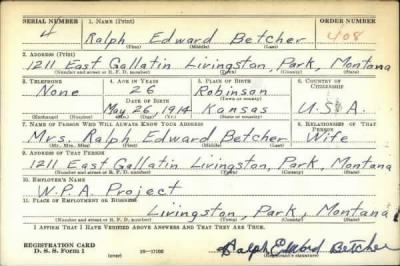 SERIAL NUMBER 1. NAME (Print) ORDER NUMBER
4 Ralph Edward Betcher 408
(First) (Middle) (Last)
2. ADDRESS (Print)
1211 East Gallatin Livingston, Park, Montana
(Number and street or R. F. D. number) (Town) (County) (State)
3. TELEPHONE 4. AGE IN YEARS 5. PLACE OF BIRTH 6. COUNTRY OF CITIZENSHIP
None 26 Robinson
DATE OF BIRTH (Town or county)
May 26, 1914 Kansas U.S.A.
(Mo.) (Day) (Yr.) (State or country)
7. NAME OF PERSON WHO WILL ALWAYS KNOW YOUR ADDRESS 8. RELATIONSHIP OF THAT PERSON
Mrs. Ralph Edward Betcher Wife
(Mr., Mrs., Miss) (First) (Middle) (Last)
9. ADDRESS OF THAT PERSON
1211 East Gallatin Livingston, Park, Montana
(Number and street or R. F. D. number) (Town) (County) (State)
10. EMPLOYER'S NAME
W.P.A. Project
11. PLACE OF EMPLOYMENT OR BUSINESS
Livingston, Park, Montana
(Number and street or R. F. D. number) (Town) (County) (State)
I AFFIRM THAT I HAVE VERIFIED ABOVE ANSWERS AND THAT THEY ARE TRUE.
REGISTRATION CARD
D. S. S. Form 1 (over) Ralph Edward Betcher
(Registrant's signature)